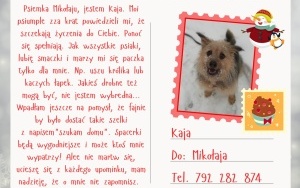 Psienka Mikołaju, jestem Kaja. Moi
psiumple zza krat powiedzieli mi, że
szczekają życzenia do Ciebie. Ponoć
się spełniają. Jak wszystkie psiaki,
lubię smaczki i marzy mi się paczka
tylko dla mnie. Np. uszu królika lub
kaczych łapek. Jakieś drobne też
mogą być, nie jestem wybredna...
Wpadłam jeszcze na pomysł, że fajnie
by było dostać takie szelki
z napisem"szukam domu". Spacerki
będą wygodniejsze i może ktoś mnie
wypatrzy! Alee nie martw się,
ucieszę się z każdego upominku, mam
nadzieję, że o mnie nie zapomnisz.
Kaja
Do: Mikołaja
Tel. 792 282 874